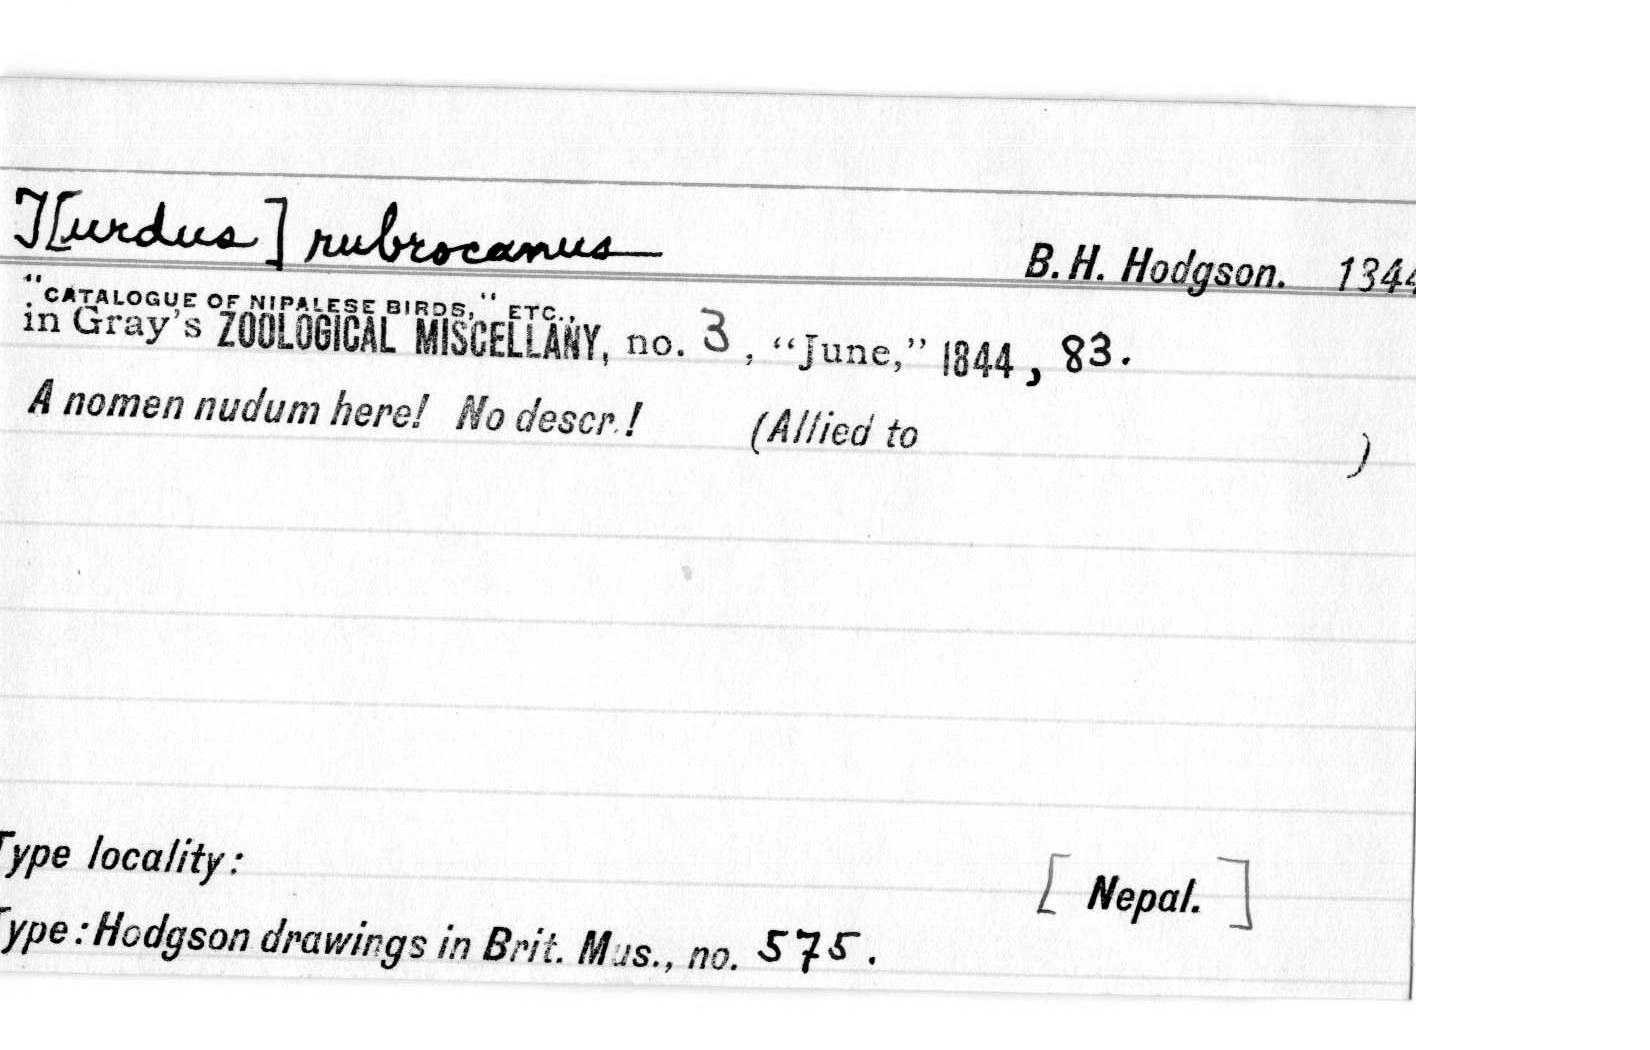 T[urdus] rubrocanus B. H. Hodgson. 1844
"CATALOGUE OF NIPALESE BIRDS," ETC.,
in Gray's ZOOLOGICAL MISCELLANY, no. 3, "June," 1844, 83.
A nomen nudum here! No descr.! (Allied to )
Type locality: [Nepal.]
Type: Hodgson drawings in Brit. Mus., no. 575.